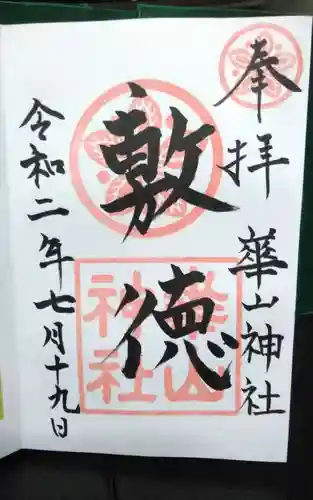 奉拝 華山神社
敷徳
華山
神社
令和二年七月十九日